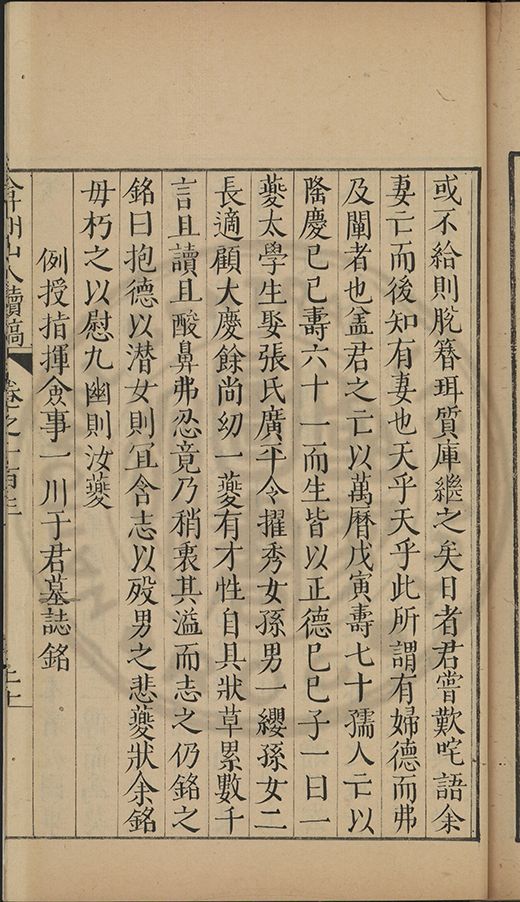 或不給則脫簪珥質庫繼之矣日者君嘗歎咤語余
妻亡而後知有妻也天乎天乎此所謂有婦德而弗
及闡者也盖君之亡以萬曆戊寅壽七十孺人亡以
隆慶己巳壽六十一而生皆以正德己巳子一曰一
夔太學生娶張氏廣平令擢秀女孫男一纓孫女二
長適顧大慶餘尚幼一夔有才性自具狀草累數千
言且讀且酸鼻弗忍竟乃稍裒其溢而志之仍銘之
銘曰抱德以潜女則冝含志以歿男之悲夔狀余銘
毋朽之以慰九幽則汝夔
例授指揮僉事一川于君墓誌銘
弇州山人續稿
卷之一百